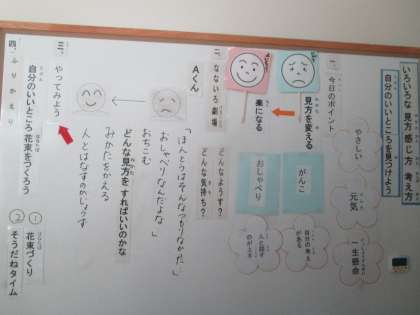 いろいろな見方 感じ方 考え方
自分のいいところを見つけよう
一、今日のポイント
見方を変える
楽になる
やさしい
元気
一生懸命
がんこ
おしゃべり
自分の考えがある
人と話すのが上手
二、なないろ劇場
どんなようす?
どんな気持ち?
Aくん
「ほんとうはそんなつもりなかった」
おしゃべりなんだよな
おちこむ
どんな見方をすればいいのかな
みかたをかえる
人とはなすのがじょうず
三、やってみよう
四、ふりかえり
自分のいいところ花束をつくろう
① 花束づくり
② そうだねタイム